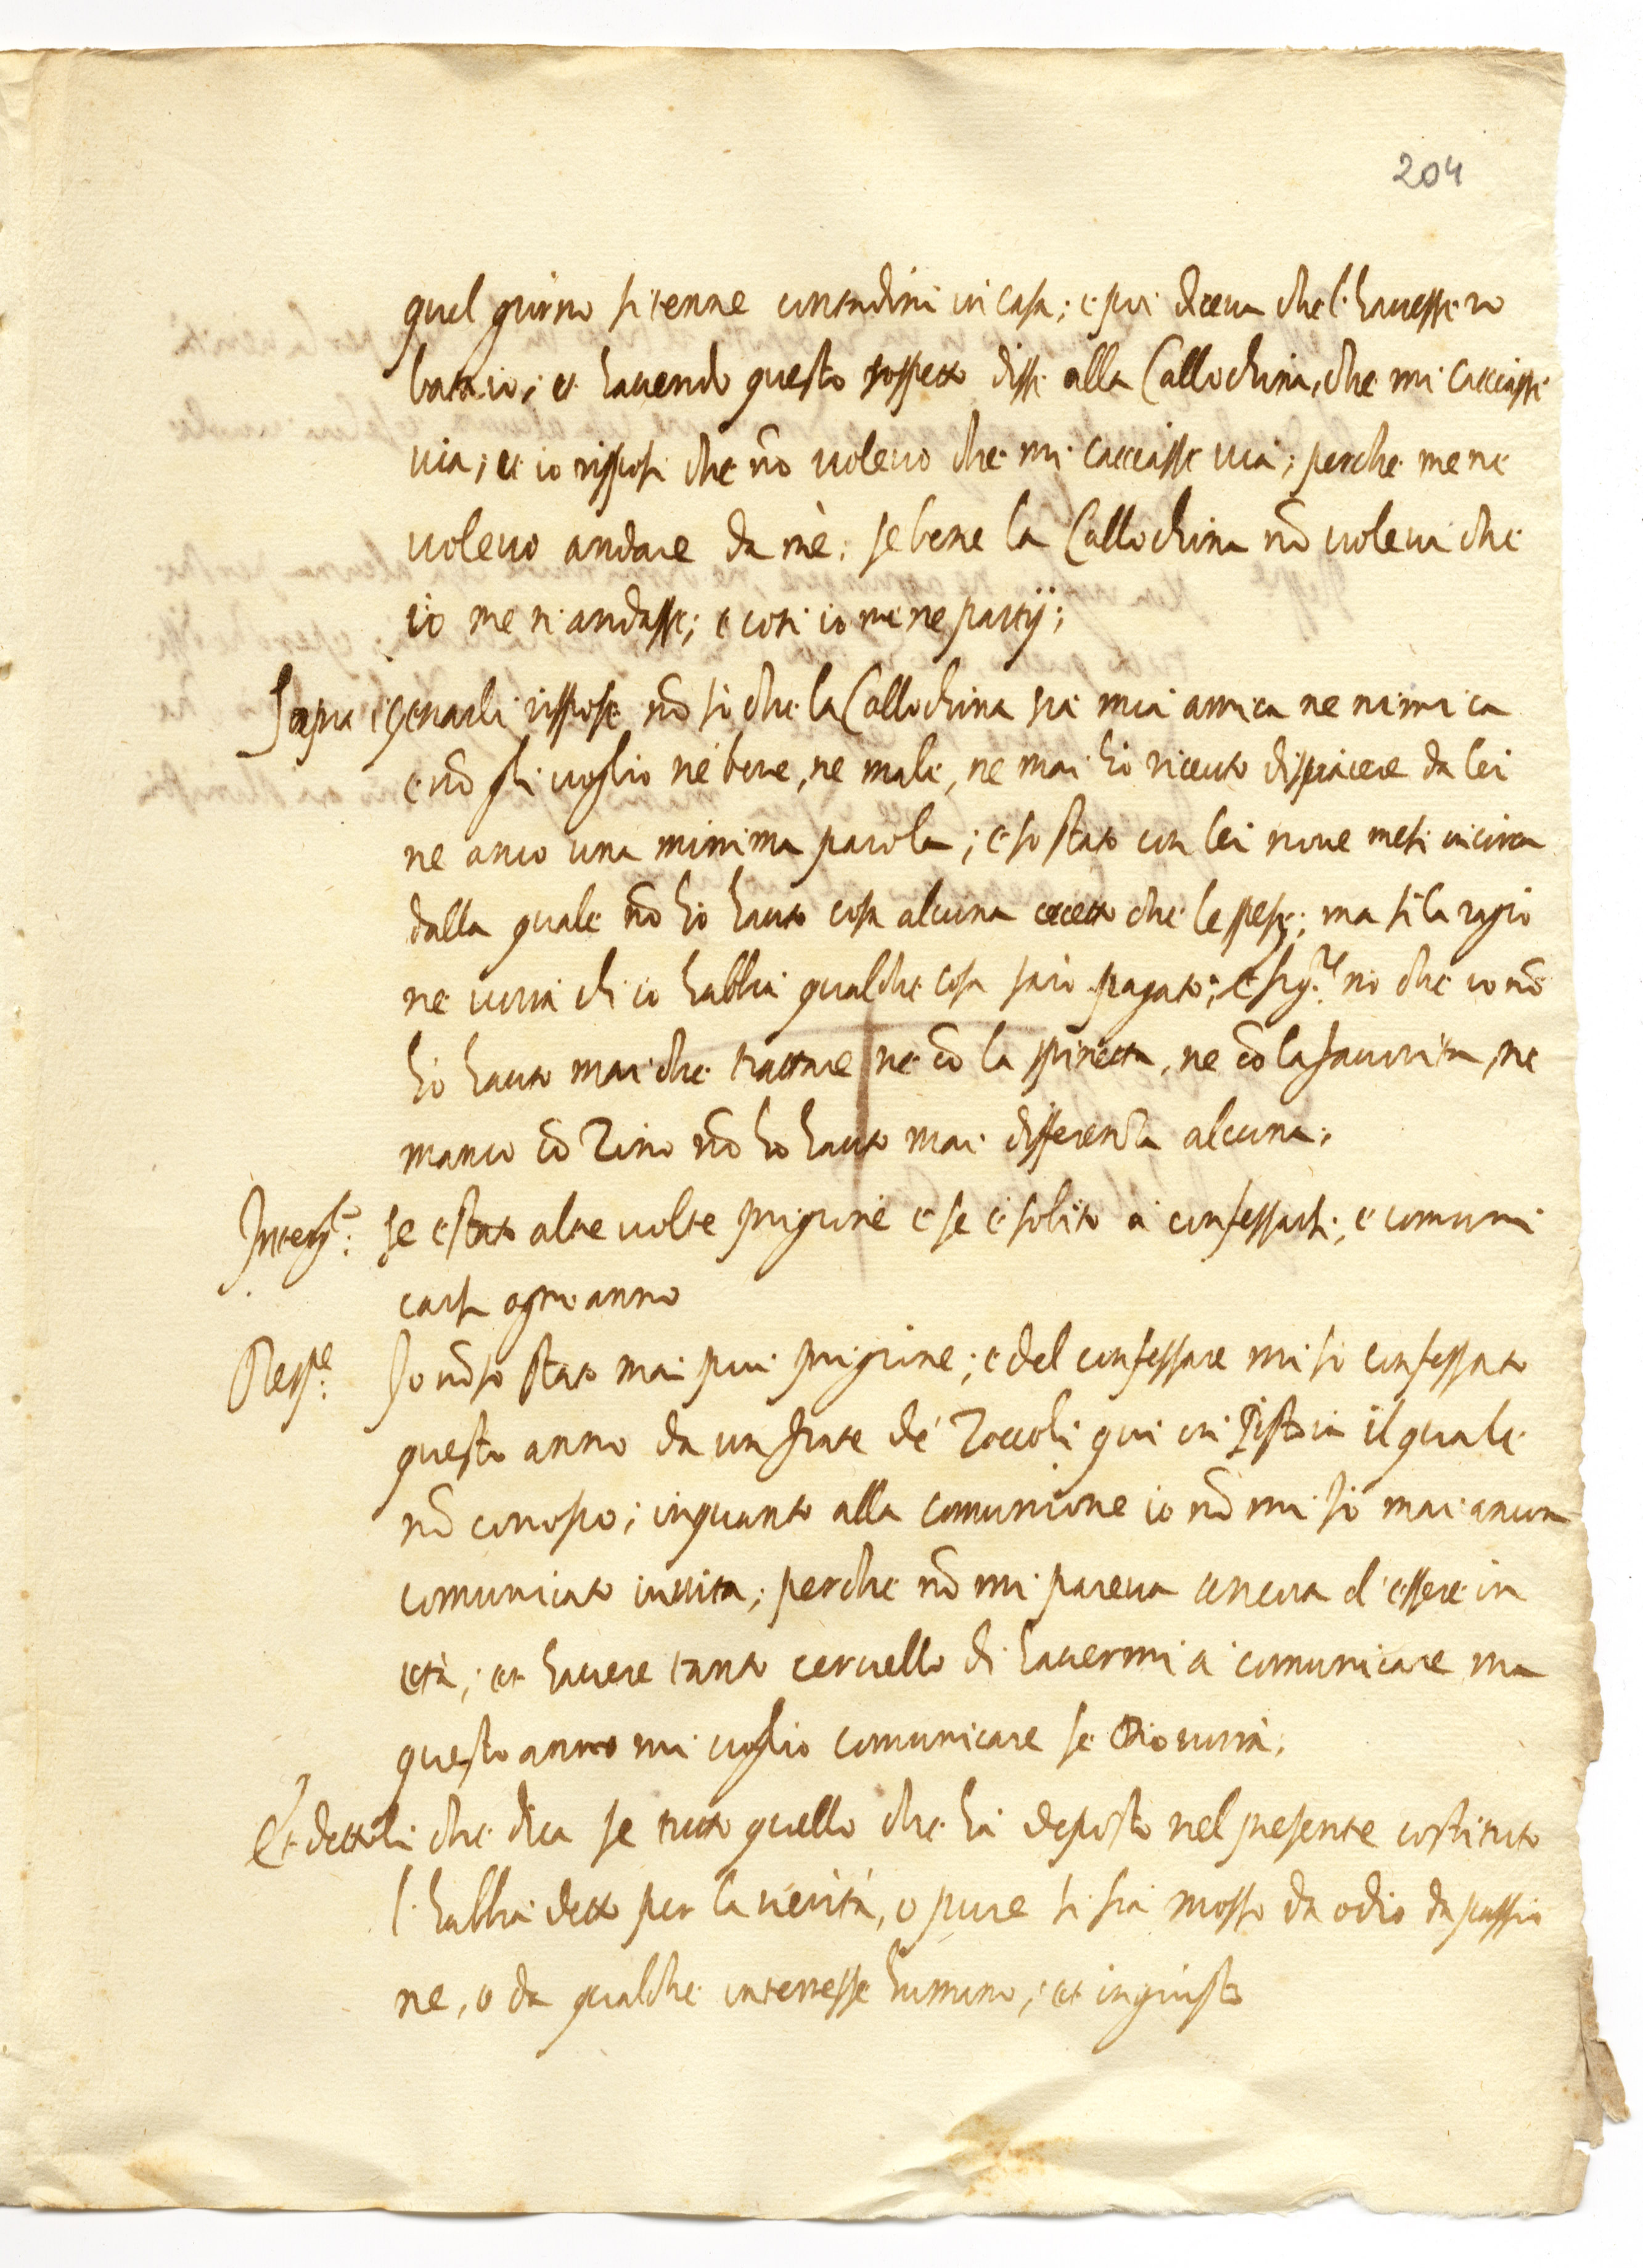 204
quel giorno si tenne contadini in casa; e poi diceva che l'havesse
io; et havendo questo sospetto disse alla Callochina, che mi cacciasse
via; et io rissposi che nõ volevo che mi cacciasse via; perche me ne
volevo andare da mè: se bene la Callochina nõ voleva che
io me n'andasse; e cosi io me ne partij;
Sopra i generali rispose nõ sò che la Callochina sia mia amica ne nimica
e nõ gli voglio ne bene, ne male, ne mai hò riceuto dispiacere da lei
ne anco una minima parola; e so stato con lei nove mesi incirca
dalla quale nõ hò hauto cosa alcuna eccetto che le spese; ma se la ragio
ne vorrà ch' io habbia qualche cosa sarò pagato; e sig.re nò che io nõ
hò hauto mai che trattare ne cõ la spinetta, ne cõ la favorita, ne
manco cõ Tino nõ ho hauto mai differenza alcuna;
Interg.to: se è stato altre volte prigione e se è solito à confessarsi, e comuni
carsi ogni anno
Resp.e Io nõ so stato mai piu prigione; e del confessare mi sò confessato
questo anno da un frate de' Zoccoli qui in Pistoia il quale
nõ conosco; inquanto alla comunione io nõ mi sò mai ancora
comunicato in vita; perche nõ mi pareva ancora d'essere in
età; et havere tanto cervello di havermi a comunicare ma
questo anno mi voglio comunicare se Dio vorrà;
Et dettoli che dica se tutto quello che hà deposto nel presente costituto
l'habbia detto per la verità, o pure si sia mosso da odio da passio
ne, o da qualche interresse humano, et ingiusto